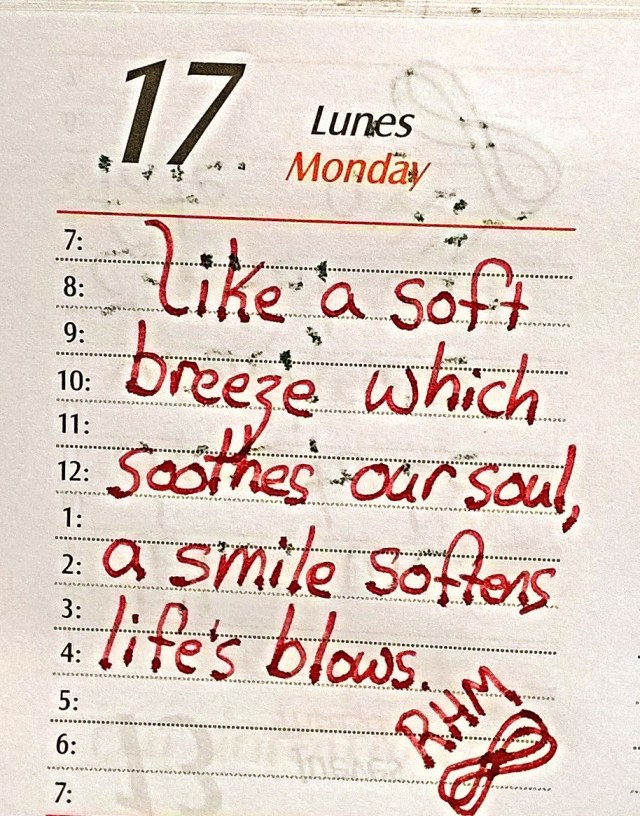 17
Lunes
Monday
7:
8: Like a soft
9:
10: breeze which
11:
12: soothes our soul,
1:
2: a smile softens
3:
4: life's blows.
5: RHM
6:
7: